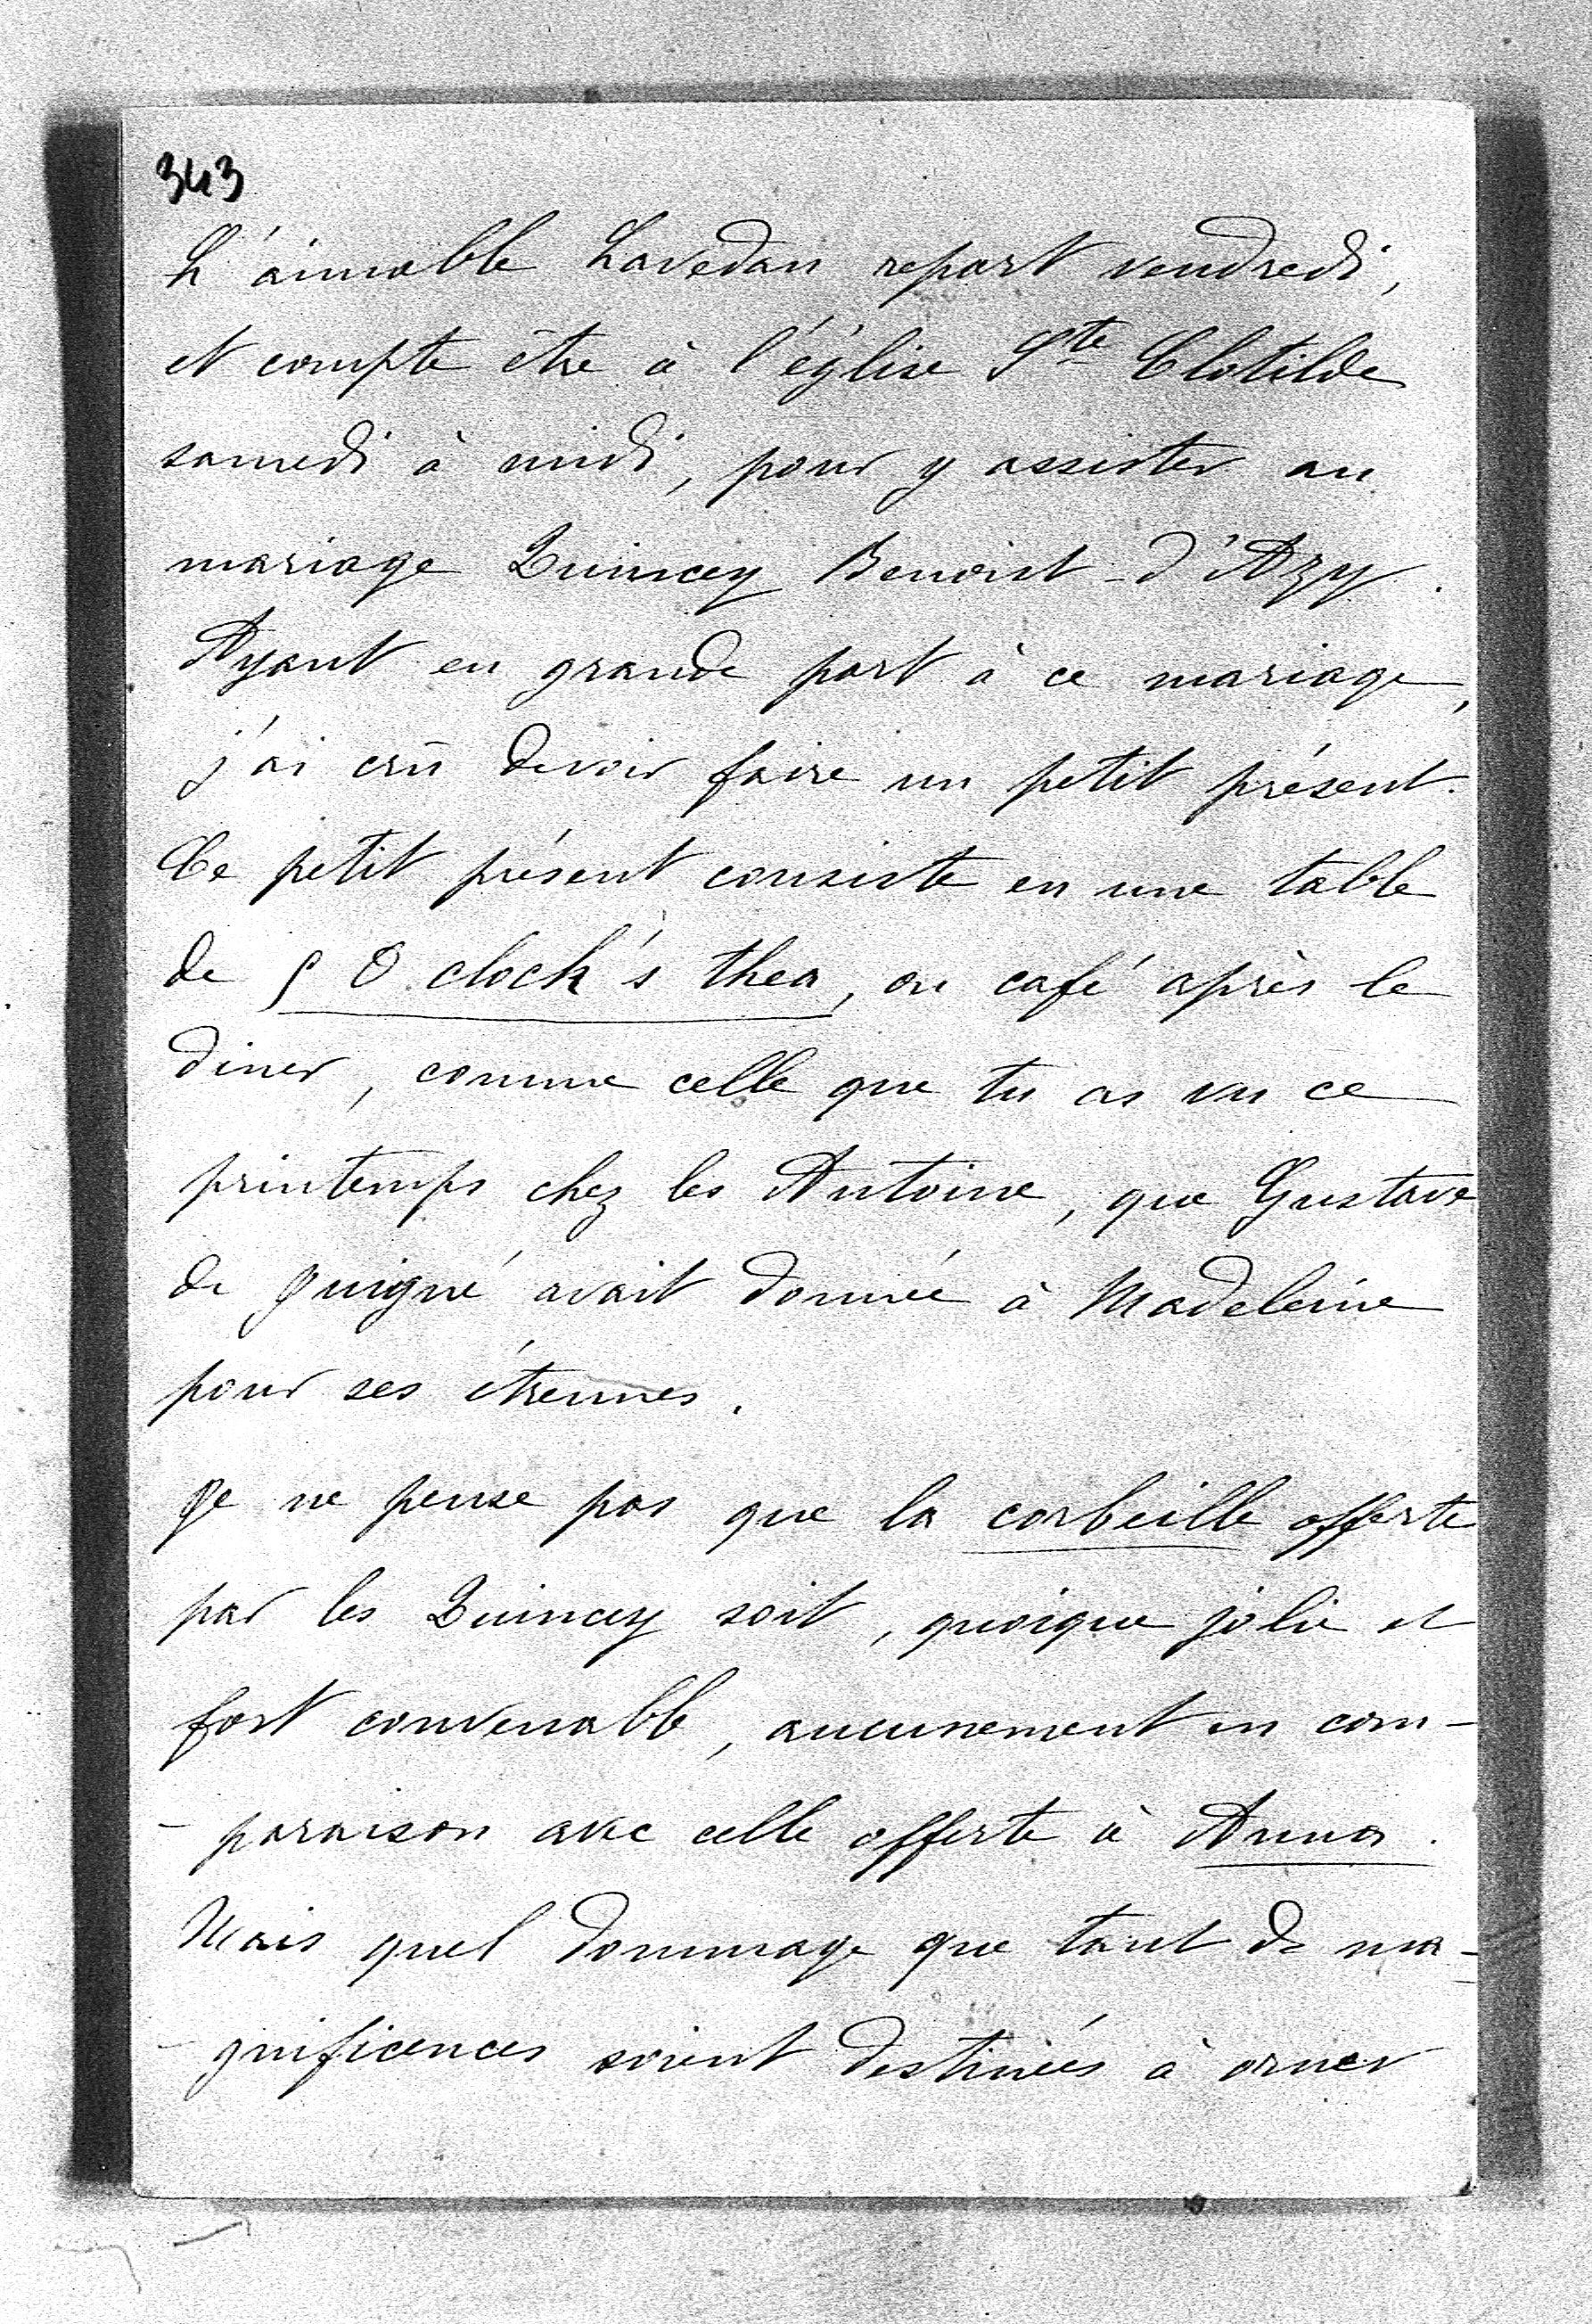 343
L'aimable Lavedan repart vendredi,
et compte être à l'église Ste Clotilde
samedi à midi, pour y assister au
mariage Quincey Benoist-d'Azy.
Ayant eu grande part à ce mariage,
j'ai crû devoir faire un petit présent.
Ce petit présent consiste en une table
de 5 O clock's thea, ou café après le
diner, comme celle que tu as vu ce
printemps chez les Antoine, que Gustave
de Juigné avait donnée à Madeleine
pour ses étrennes.
Je ne pense pas que la corbeille offerte
par les Quincey soit, quoique jolie et
fort convenable, aucunement en com-
-paraison avec celle offerte à Anna.
Mais quel dommage que tant de ma-
-gnificences soient destinées à orner